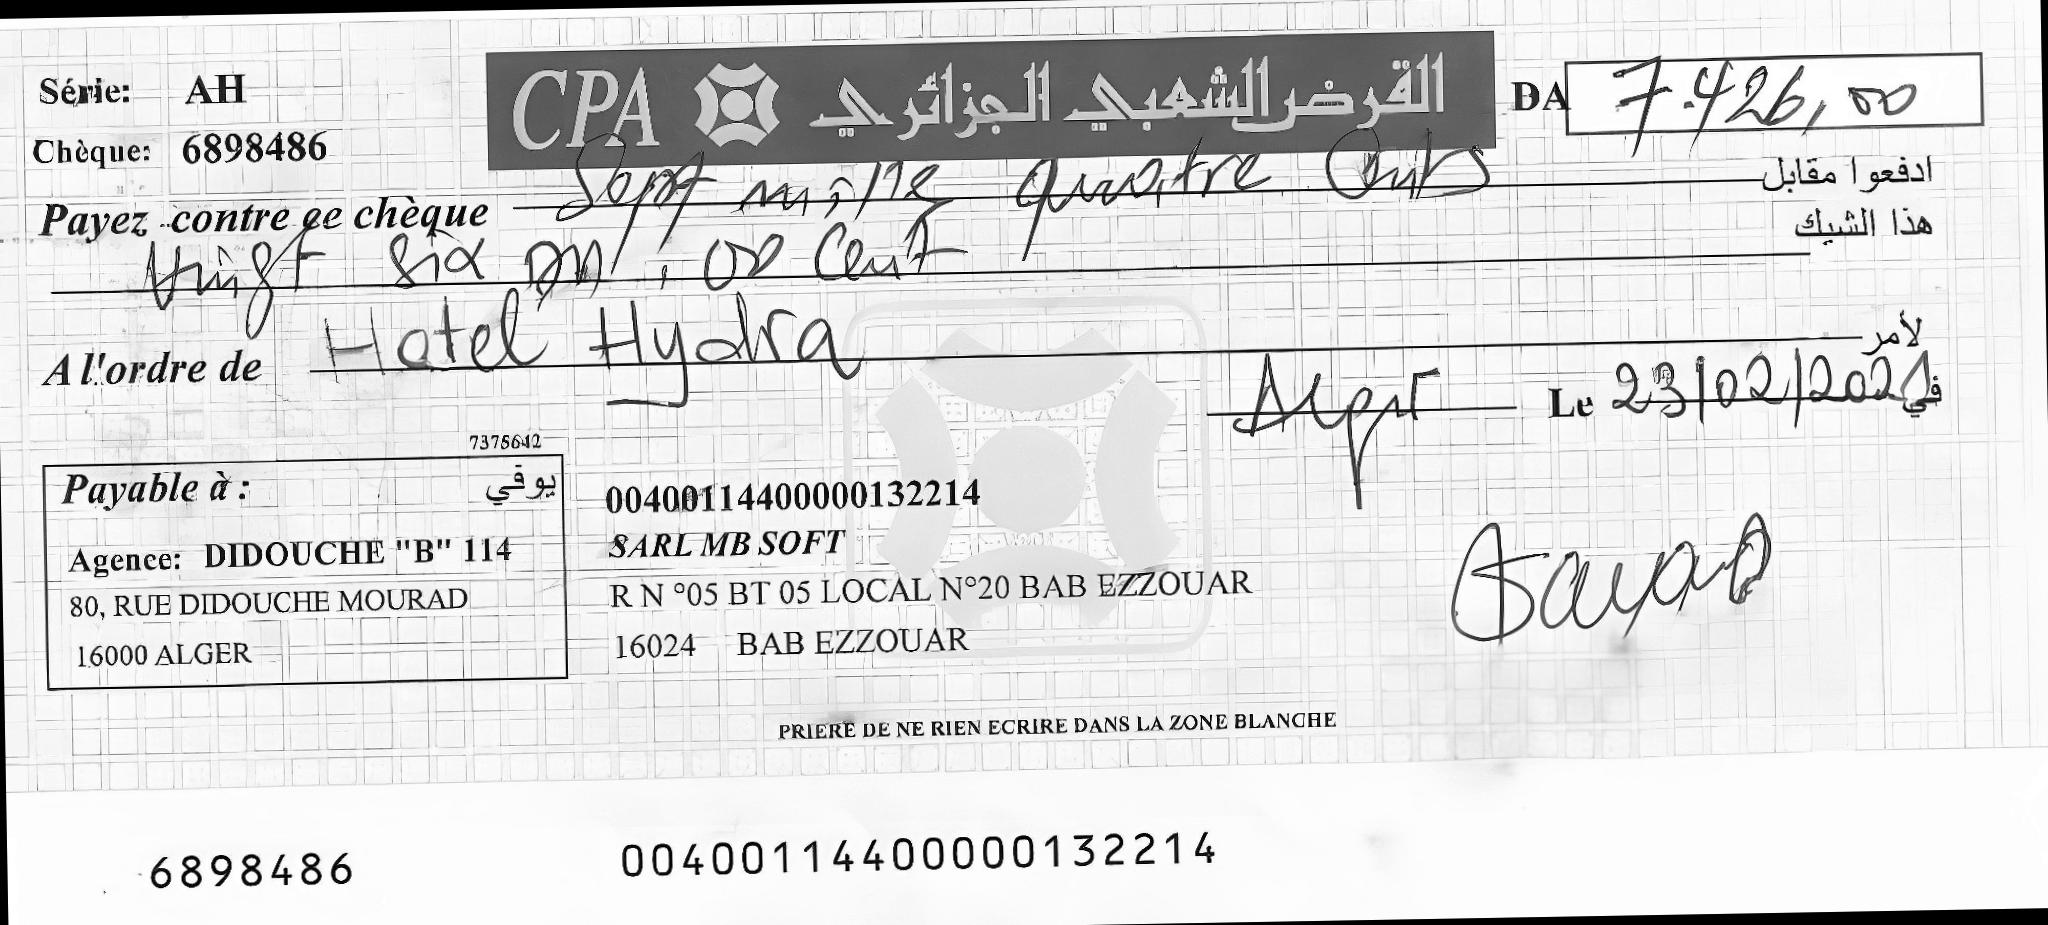 Série: AH
CPA القرض الشعبي الجزائري
DA 7.426,00
Chèque: 6898486
Payez contre ce chèque Sept mille quatre Cents ادفعوا مقابل
هذا الشيك
Vingt six DA, 00 Cent
A l'ordre de Hotel Hydra لأمر
Alger Le 23/02/2021 في
7375642
Payable à : يوفي
Agence: DIDOUCHE "B" 114
80, RUE DIDOUCHE MOURAD
16000 ALGER
00400114400000132214
SARL MB SOFT
R N °05 BT 05 LOCAL N°20 BAB EZZOUAR
16024 BAB EZZOUAR
PRIERE DE NE RIEN ECRIRE DANS LA ZONE BLANCHE
6898486 00400114400000132214